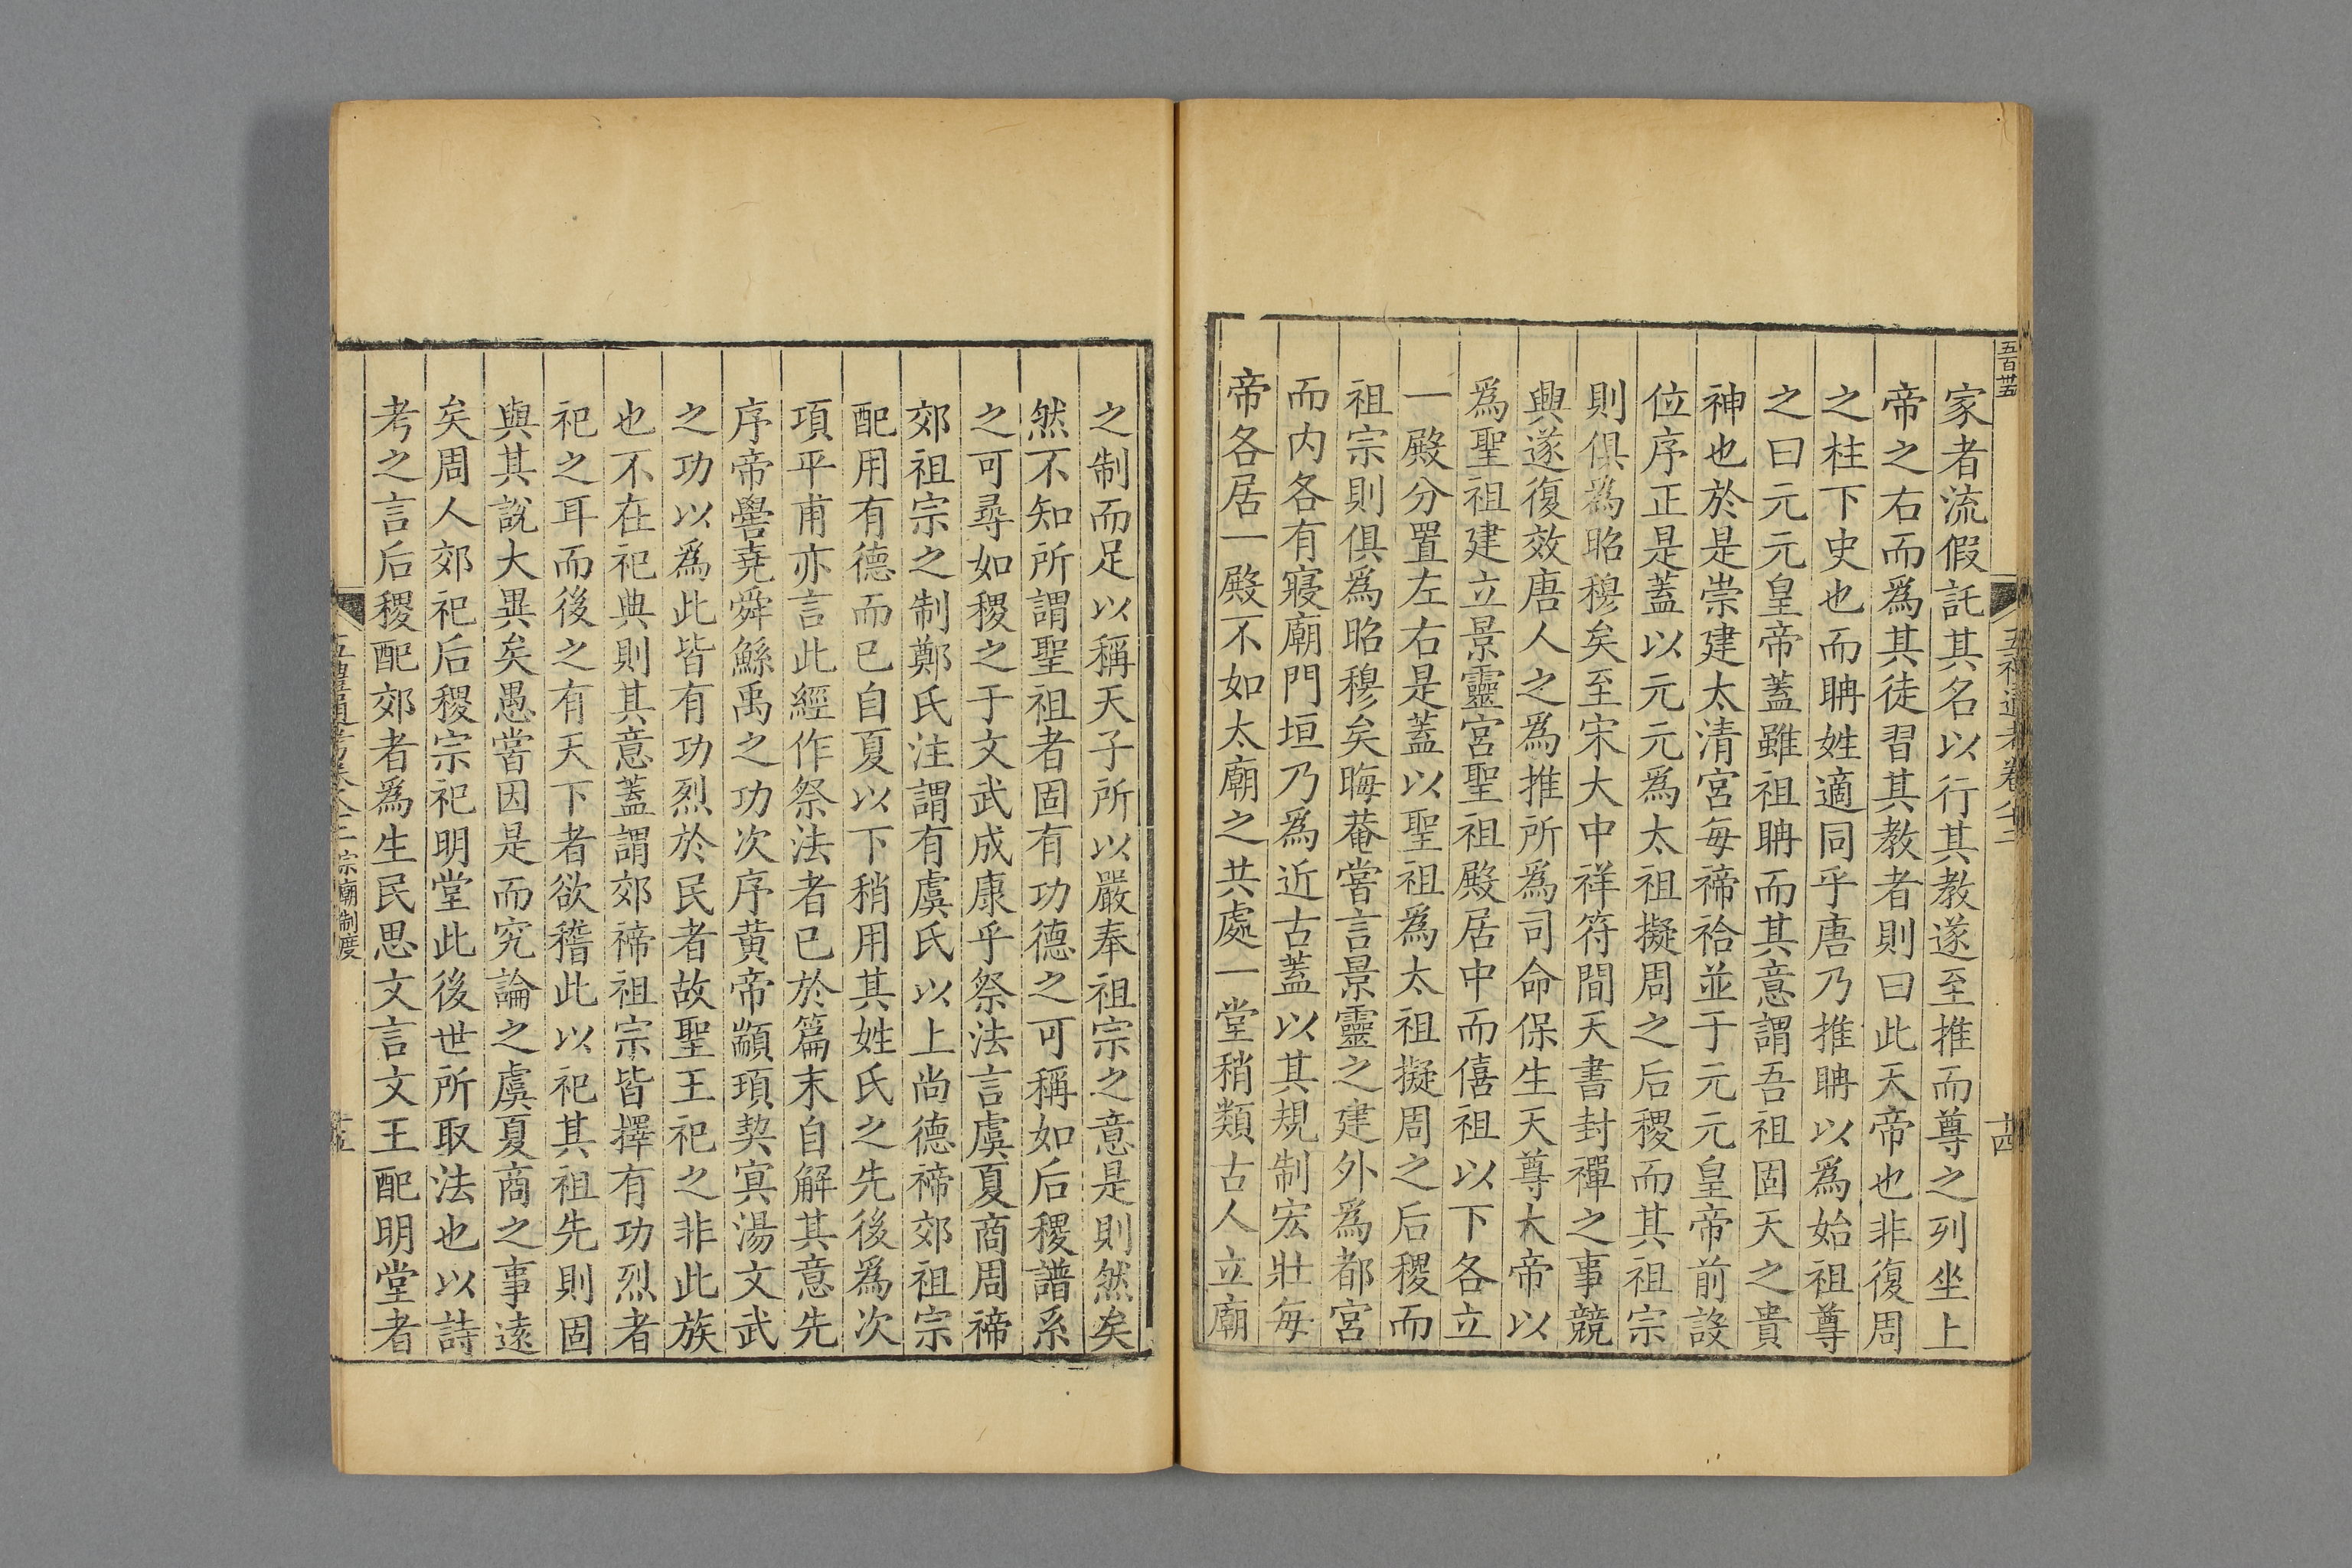 五百廿五
五禮通考卷八十二
十四
家者流假託其名以行其教遂至推而尊之列坐上
帝之右而爲其徒習其教者則曰此天帝也非復周
之柱下史也而聃姓適同乎唐乃推聃以爲始祖尊
之曰元元皇帝蓋雖祖聃而其意謂吾祖固天之貴
神也於是崇建太清宮每禘祫並于元元皇帝前設
位序正是蓋以元元爲太祖擬周之后稷而其祖宗
則俱爲昭穆矣至宋大中祥符間天書封禪之事競
興遂復效唐人之爲推所爲司命保生天尊大帝以
爲聖祖建立景靈宮聖祖殿居中而僖祖以下各立
一殿分置左右是蓋以聖祖爲太祖擬周之后稷而
祖宗則俱爲昭穆矣晦菴嘗言景靈之建外爲都宮
而内各有寢廟門垣乃爲近古蓋以其規制宏壯每
帝各居一殿不如太廟之共處一堂稍類古人立廟
之制而足以稱天子所以嚴奉祖宗之意是則然矣
然不知所謂聖祖者固有功德之可稱如后稷譜系
之可尋如稷之于文武成康乎祭法言虞夏商周禘
郊祖宗之制鄭氏注謂有虞氏以上尚德禘郊祖宗
配用有德而已自夏以下稍用其姓氏之先後爲次
項平甫亦言此經作祭法者已於篇末自解其意先
序帝嚳堯舜鯀禹之功次序黄帝顓頊契冥湯文武
之功以爲此皆有功烈於民者故聖王祀之非此族
也不在祀典則其意蓋謂郊禘祖宗皆擇有功烈者
祀之耳而後之有天下者欲稽此以祀其祖先則固
與其說大異矣愚嘗因是而究論之虞夏商之事遠
矣周人郊祀后稷宗祀明堂此後世所取法也以詩
考之言后稷配郊者爲生民思文言文王配明堂者
五禮通考卷八十二 宗廟制度
十五